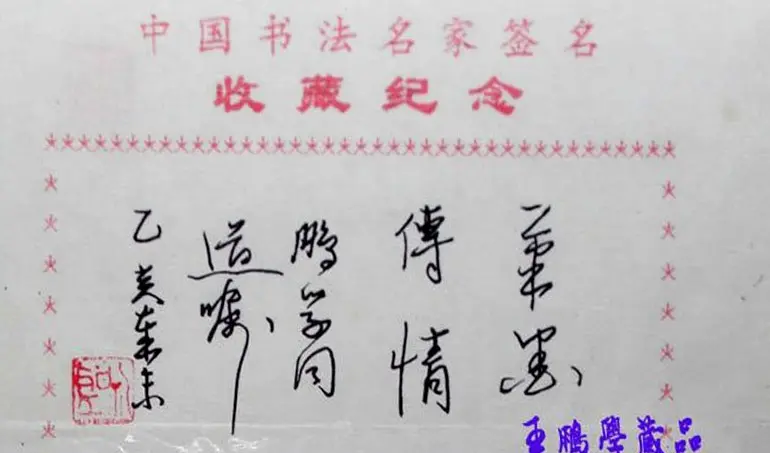 中国书法名家签名
收藏纪念
筆墨
傳情
鹏学同
道嘱
乙亥
王鵬學藏品